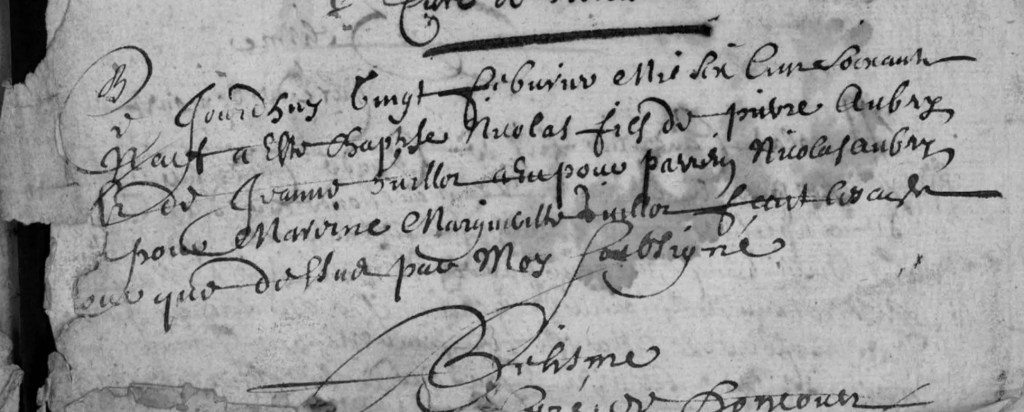 Curé de
B
Jourdhuy Vingt febvrier Mil six Cens soixante
Neuf a este Baptise Nicolas fils de pierre Aubry
Et de Jeanne Guillot a eu pour parrein Nicolas aubry
pour Mareine Marguerite Guillot faict les an
jour que dessus par Moy soubsigné
Behsme
Curé de Honcourt